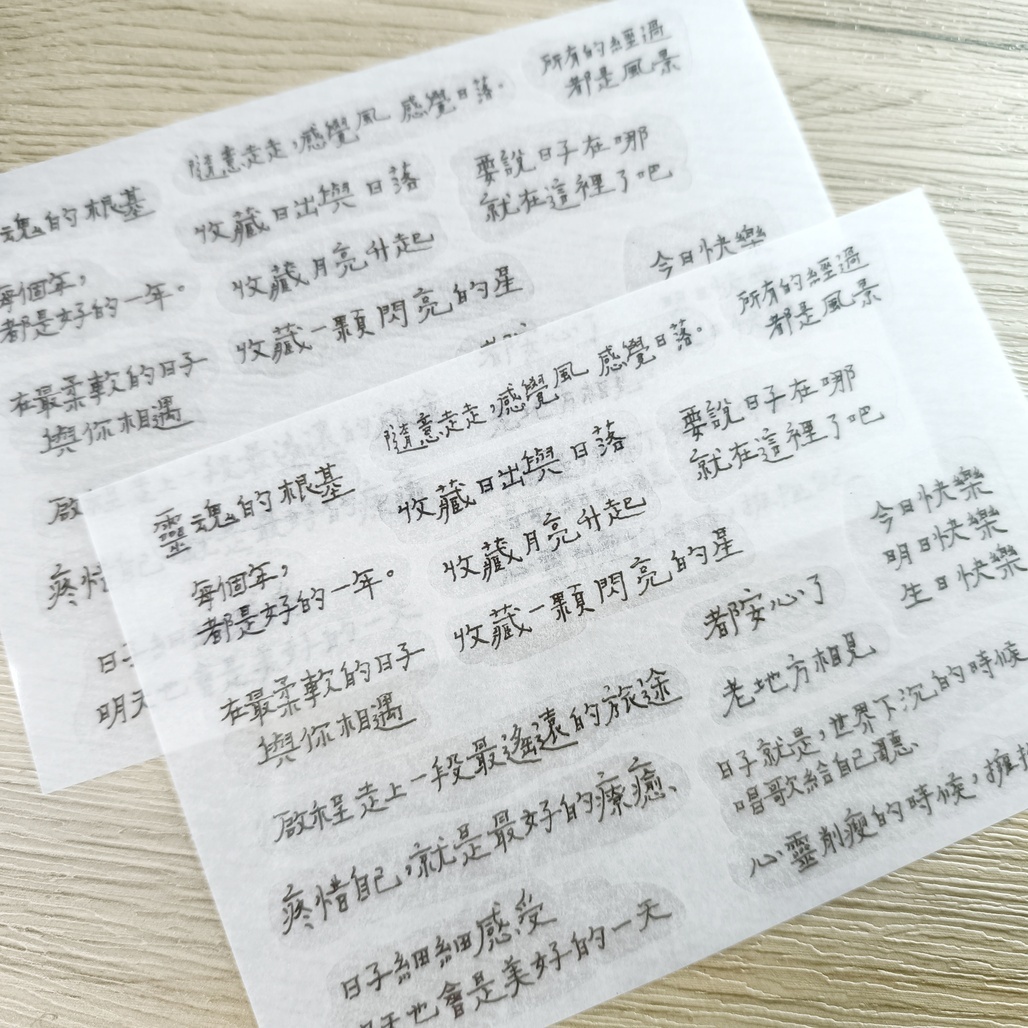 所有的經過
都是風景
隨意走走，感覺風 感覺日落。
魂的根基
收藏日出與日落
要說日子在哪
就在這裡了吧
每個年，
都是好的一年。
收藏月亮升起
今日快樂
收藏一顆閃亮的星
在最柔軟的日子
與你相遇
啟
疼惜
日子
明天
所有的經過
都是風景
隨意走走，感覺風 感覺日落。
靈魂的根基
收藏日出與日落
要說日子在哪
就在這裡了吧
每個年，
都是好的一年。
收藏月亮升起
今日快樂
明日快樂
生日快樂
收藏一顆閃亮的星
都安心了
在最柔軟的日子
與你相遇
老地方相見
啟程走上一段最遙遠的旅途
日子就是，世界下沉的時候
唱歌給自己聽、
疼惜自己，就是最好的療癒、
心靈削瘦的時候，擁
日子細細感受
明天也會是美好的一天